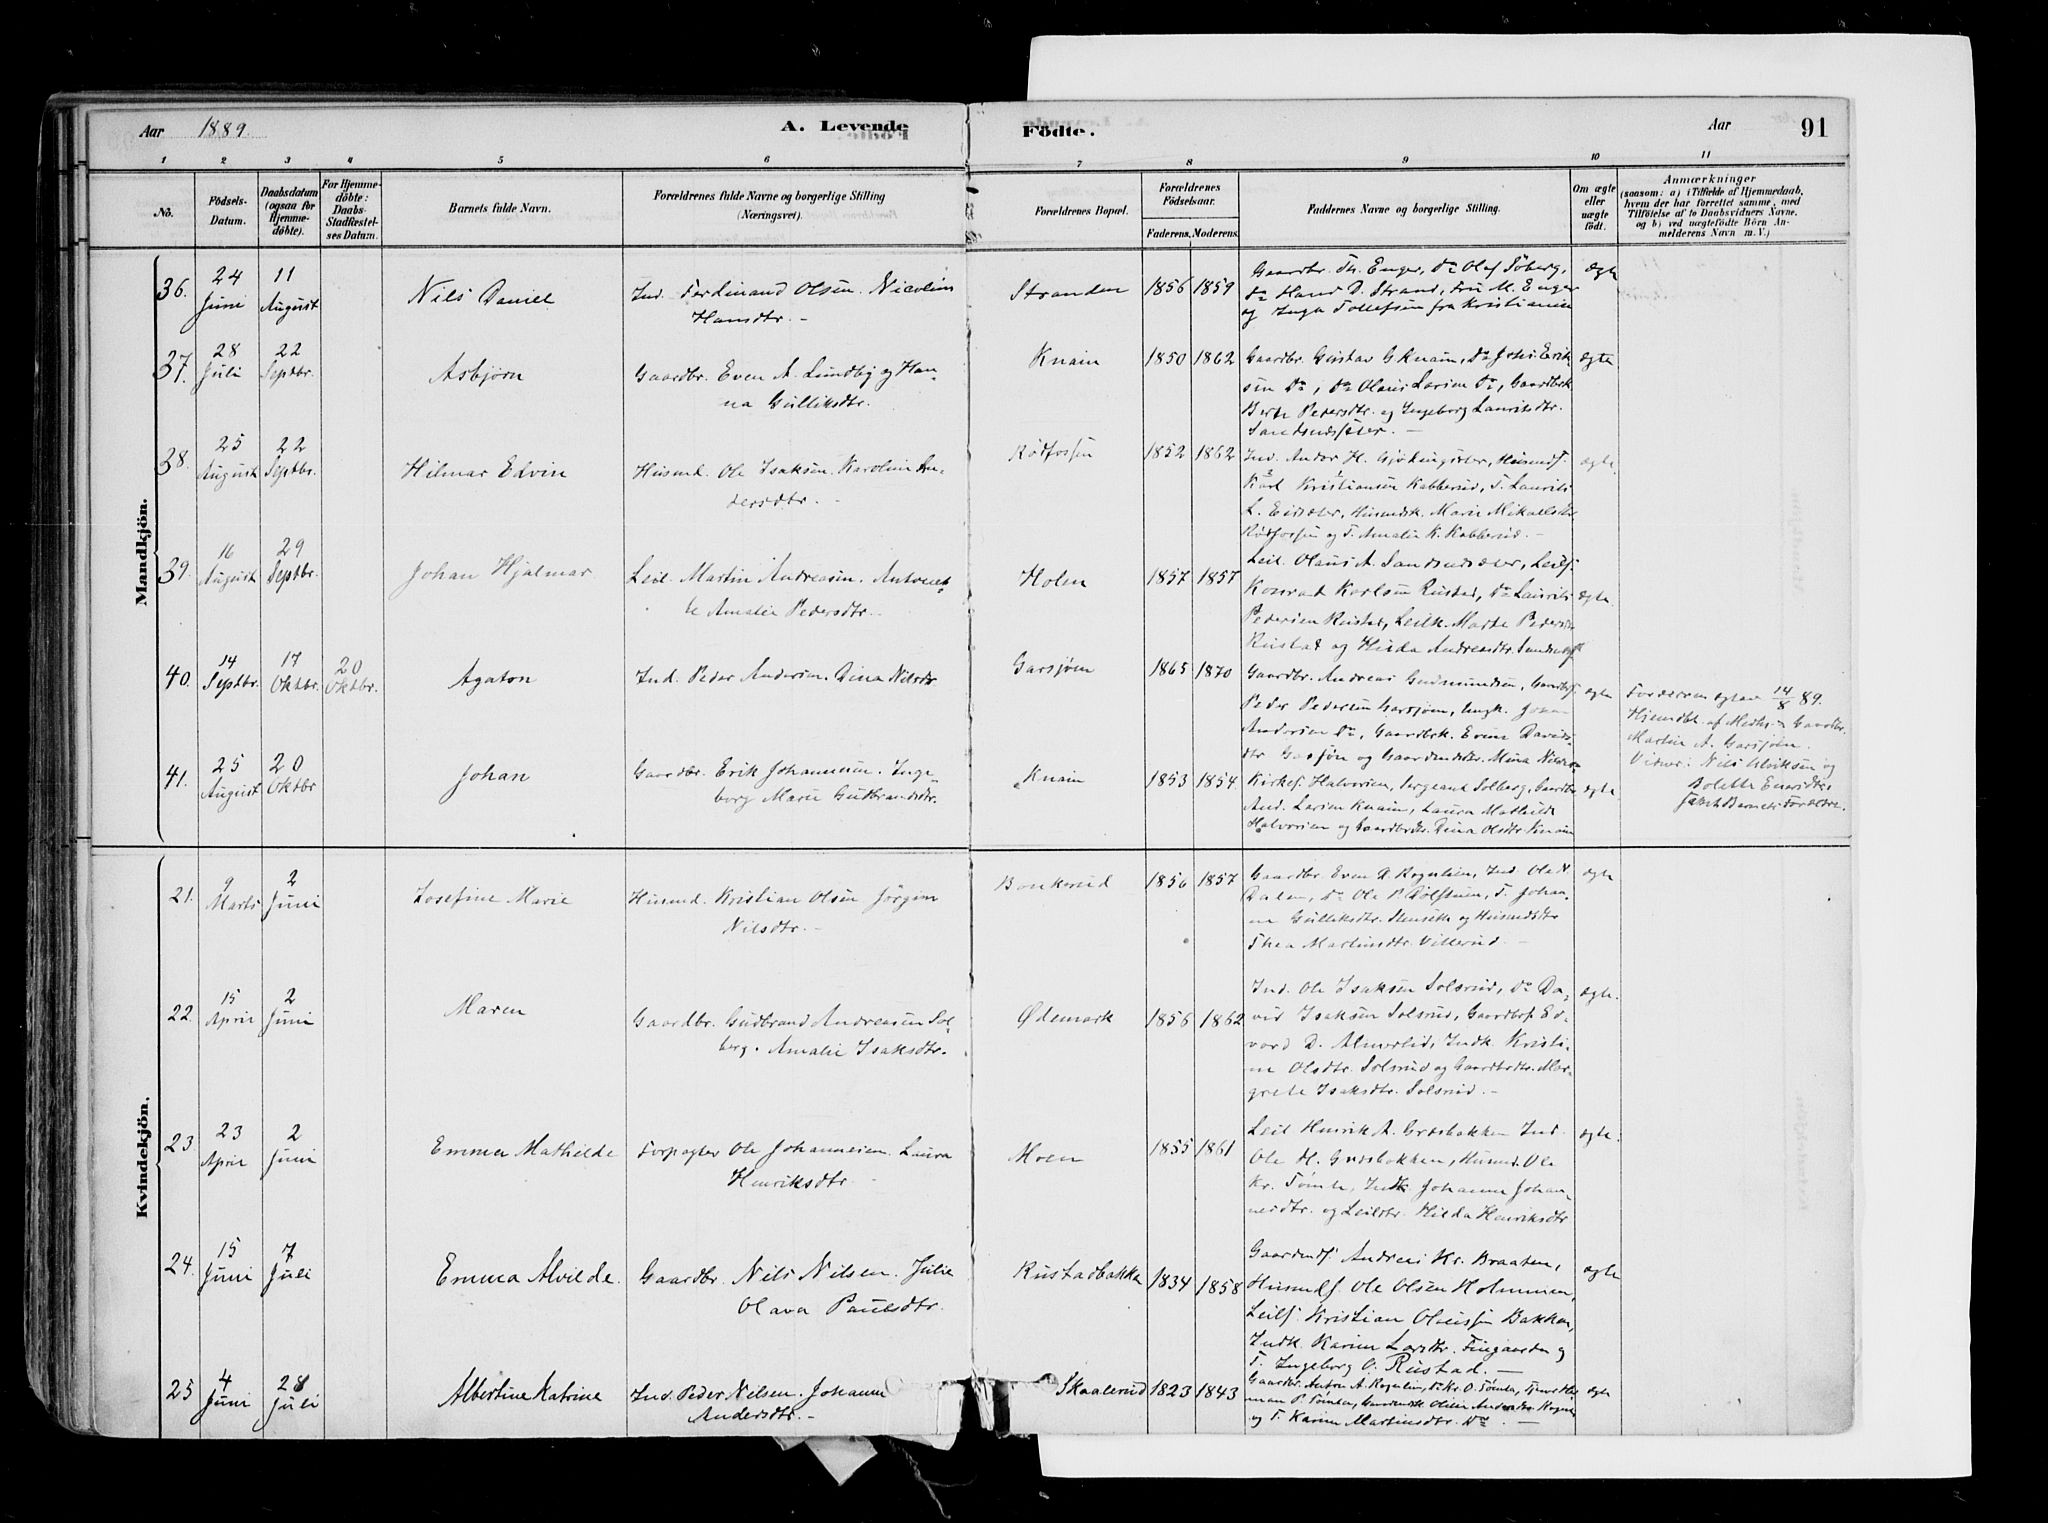 Aar 1889 A. Levende Födte. Aar 91
1 2 3 4 5 6 7 8 9 10 11
No. Födsels-Datum. Daabsdatum (ogsaa for Hjemme-döbte). For Hjemme-döbte: Daabs-Stadfæstel-ses Datum. Barnets fulde Navn. Forældrenes fulde Navne og borgerlige Stilling (Næringsvei). Forældrenes Bopæl. Forældrenes Födselsaar. Faderens. Moderens. Faddernes Navne og borgerlige Stilling. Om ægte eller uægte födt. Anmærkninger (saasom: a) i Tilfælde af Hjemmedaab, hvem der har forrettet samme, med Tilföielse af to Daabsvidners Navne, og b) ved uægtefödte Börn An-melderens Navn m. V.)
Mandkjön.
36. 24 Juni 11 August Nils Daniel Ind. Ferdinand Olsen. Nicoline
Hansdtr. -
Stranden 1856 1859 Gaardbr. Th. Enger, Do Olaf Toberg,
Do Hans D. Strand, Fru M. Enger
og Inga Tollefsen fra Kristiania
ægte
37. 28 Juli 22 Septbr. Asbjørn Gaardbr. Even A. Lundby og Han-
na Gulliksdtr.
Knain 1850 1862 Gaardbr. Gustav G. Knain, Do Johs. Erik-
sen Do, Do Olaus Larsen Do, Gaardbrk
Berte Pedersdtr. og Ingeborg Lauritsdtr.
ægte
38. 25 August 22 Septbr. Hilmar Edvin Husmd. Ole Isaksen. Karoline An-
dersdtr. -
Rødfossen 1852 1862 Ind. Andor H. Gjøkingsæter, Husmdf.
Karl Kristiansen Kabberud, T. Laurits
L. Eidsæter, Husmdsk. Marie Mikaelsdtr
Rødfossen og T. Amalie K. Kabberud. -
ægte
39. 16 August 29 Septbr. Johan Hjalmar Leil. Martin Andreasen. Antonet-
te Amalie Pedersdtr. -
Holen 1857 1857 Leil. Olaus A. Sandsæter, Leilf.
Konrad Karlsen Rustad, Do Laurits
Pedersen Rustad, Leilk. Marte Pedersdtr
Rustad og Hilda Andreasdtr.
ægte
40. 14 Septbr. 17 Oktbr. 20 Oktbr. Agaton Ind. Peder Andersen. Dina Nilsdtr
Garsjøen 1865 1870 Gaardbr. Andreas Gudmundsen, Gaardbf.
Peder Pedersen Garsjøen, Ungk. Johan
Andersen Do, Gaardbrk. Evine Davids-
dtr Garsjøn og Gaardmdsdtr. Mina Nilsdtr
ægte
Forældrene ægtev 14/8 89.
Hjemdbt. af Gaardbr.
Martin A. Garsjøen.
Vidner: Nils Ulriksen og
Bolette Evensdtr.
samt Barnets Forældre.
41. 25 August 20 Oktbr Johan Gaardbr. Erik Johannesen. Inge-
borg Marie Gudbrandsdtr.
Knain 1853 1854 Kirkes. Halvorsen, Sergeant Solberg, Gaardbr.
And. Larsen Knain, Laura Mathilde
Halvorsen og Gaardbrdtr. Dina Olsdtr. Knain
ægte
Kvindekjön.
21. 9 Marts 2 Juni Josefine Marie Husmd. Kristian Olsen Jørgine
Nilsdtr. -
Bonkerud 1856 1857 Gaardbr. Even A. Rognlien, Ind Ola A
Dalen, Do Ole P. Dølsteen, T. Johan-
ne Gulliksdtr. og Husmdsdtr
Thea Martinsdtr. Villerud. -
ægte
22. 15 April 2 Juni Maren Gaardbr. Gudbrand Andreasen Sol-
berg. Amalie Isaksdtr.
Ødemark 1856 1862 Ind. Ole Isaksen Solsrud, Do Da-
vid Isaksen Solsrud, Gaardbrf. Ed-
vard D. Almerlid, Indk. Kristi-
ne Olsdtr. Solsrud og Gaardbrdtr. Mar-
grete Isaksdtr. Solsrud. -
ægte.
23. 23 April 2 Juni Emma Mathilde Forpagter Ole Johannesen. Laura
Henriksdtr.
Moen 1855 1861 Leil Henrik A. Græsbakken Ind.
Ole H. Græsbakken, Husmd. Ole
Kr. Tømte, Indk Johanne Johan-
nesdtr. og Leildtr. Hilda Henriksdtr
ægte.
24. 15 Juni 7 Juli Emma Alvilde. Gaardbr. Nils Nilsen. Julie
Olava Paulsdtr.
Rustadbakke 1834 1858 Gaardmdf. Andreas Kr. Braaten,
Husmdf. Ole Olsen Holmmen,
Leilf. Kristian Olaussen Bakken,
Indk. Karine Larsdtr. Fingaarden og
T. Ingeborg O. Rustad. -
ægte
25 4 Juni 28 Juli Albertine Katrine Ind. Peder Nilsen. Johanne
Andersdtr. -
Skaalerud 1823 1843 Gaardbr. Anton A. Rognlien, Do Kr. O. Tømte, Her-
man P. Tømte, Oline Andersdtr. Rognl.
og T. Karine Martinsdtr. Do. -
ægte